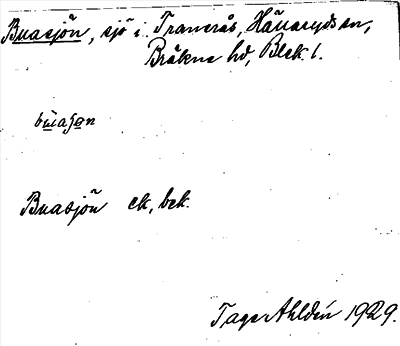 Buasjön, sjö i Tranerås, Hällaryds sn,
Bräkne hd, Blek. l.
buaʂɵn
Buasjön ek, bek.
Tage Ahldén 1929.